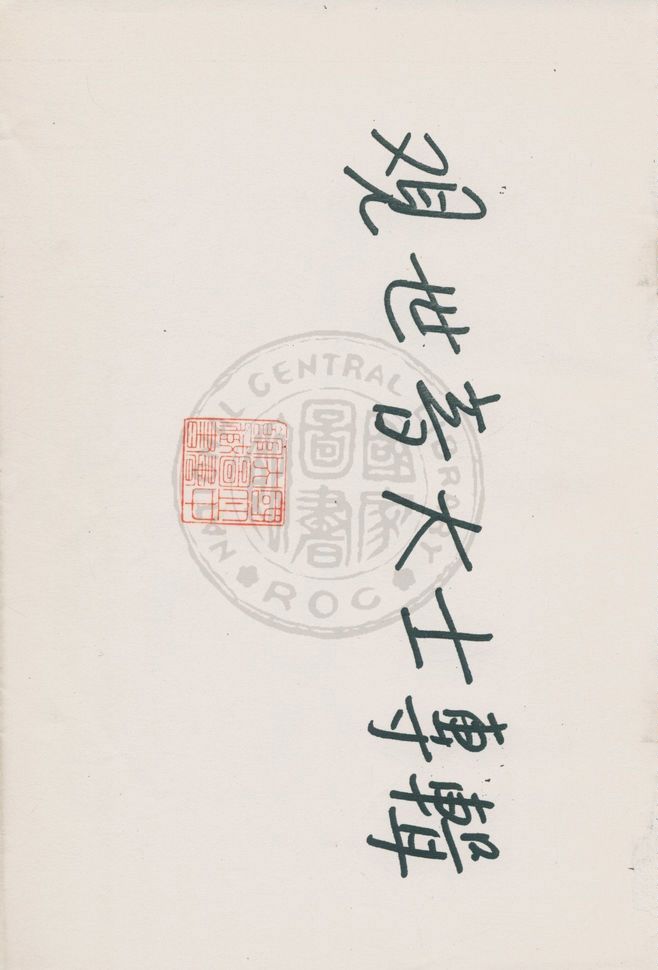 观世音大士專輯
NATIONAL CENTRAL LIBRARY
國家圖書館
ROC